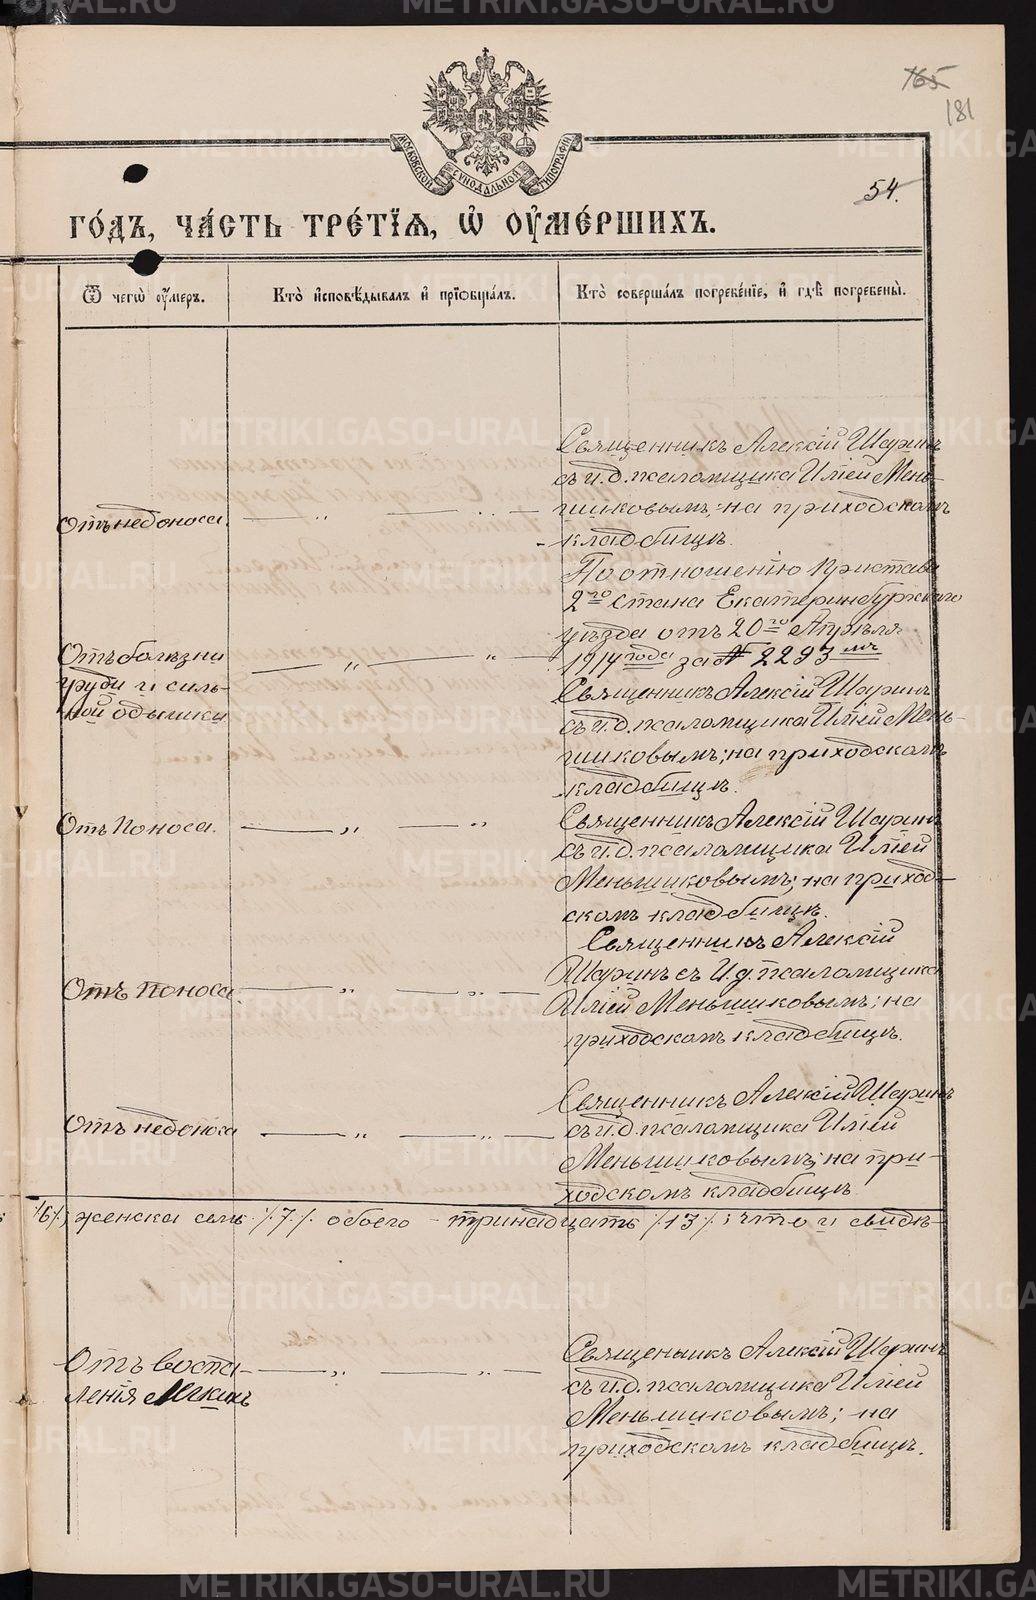 165
181
МОСКОВСКОЙ СѴНОДАЛЬНОЙ ТИПОГРАФІИ
54.
го́дъ, ча́сть тре́тїѧ, ѡ҆ оу҆ме́ршихъ.
Ѿ чегѡ̀ оу҆́меръ.
Кто̀ и҆сповѣ́дывалъ и҆ прїѡбща́лъ.
Кто̀ соверша́лъ погребе́нїе, и҆ гдѣ̀ погребены̀.
Отъ недоноса.
Священникъ Алексій Шаринъ
съ и.д. псаломщика Иліей Мень-
шиковымъ; на приходскомъ
кладбищѣ.
Отъ болѣзни
груди и силь-
ной одышки
По отношенію Пристава
2го Стана Екатеринбургскаго
уѣзда отъ 20го Апрѣля
1914 года за № 2293мъ
Священникъ Алексій Шаринъ
съ и.д. псаломщика Иліей Мень-
шиковымъ; на приходскомъ
кладбищѣ.
Отъ поноса.
Священникъ Алексій Шаринъ
съ и.д. псаломщика Иліей
Меньшиковымъ; на приход-
скомъ кладбищѣ.
Отъ поноса.
Священникъ Алексій
Шаринъ съ И.д. псаломщика
Иліей Меньшиковымъ; на
приходскомъ кладбищѣ.
Отъ недоноса
Священникъ Алексій Шаринъ
съ и.д. псаломщика Иліей
Меньшиковымъ; на при-
ходскомъ кладбищѣ
/6/, женска семь /7/. обоего - тринадцать /13/; что и свидѣ-
Отъ воспа-
ленія легкихъ
Священникъ Алексій Шаринъ
съ и.д. псаломщика Иліей
Меньшиковымъ; на
приходскомъ кладбищѣ.
METRIKI.GASO-URAL.RU